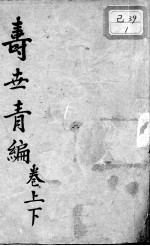 壽世青編
卷上下
己39
1